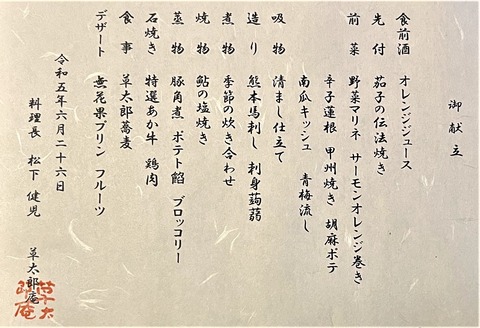 御献立
食前酒 オレンジジュース
先付 茄子の伝法焼き
前菜 野菜マリネ サーモンオレンジ巻き
辛子蓮根 甲州焼き 胡麻ポテ
南瓜キッシュ 青梅流し
吸物 清まし仕立て
造り 熊本馬刺し 刺身蒟蒻
煮物 季節の炊き合わせ
焼物 鮎の塩焼き
蒸物 豚角煮 ポテト餡 ブロッコリー
石焼き 特選あか牛 鶏肉
食事 草太郎蕎麦
デザート 無花果プリン フルーツ
令和五年六月二十六日
料理長 松下健児 草太郎庵
草太郎庵